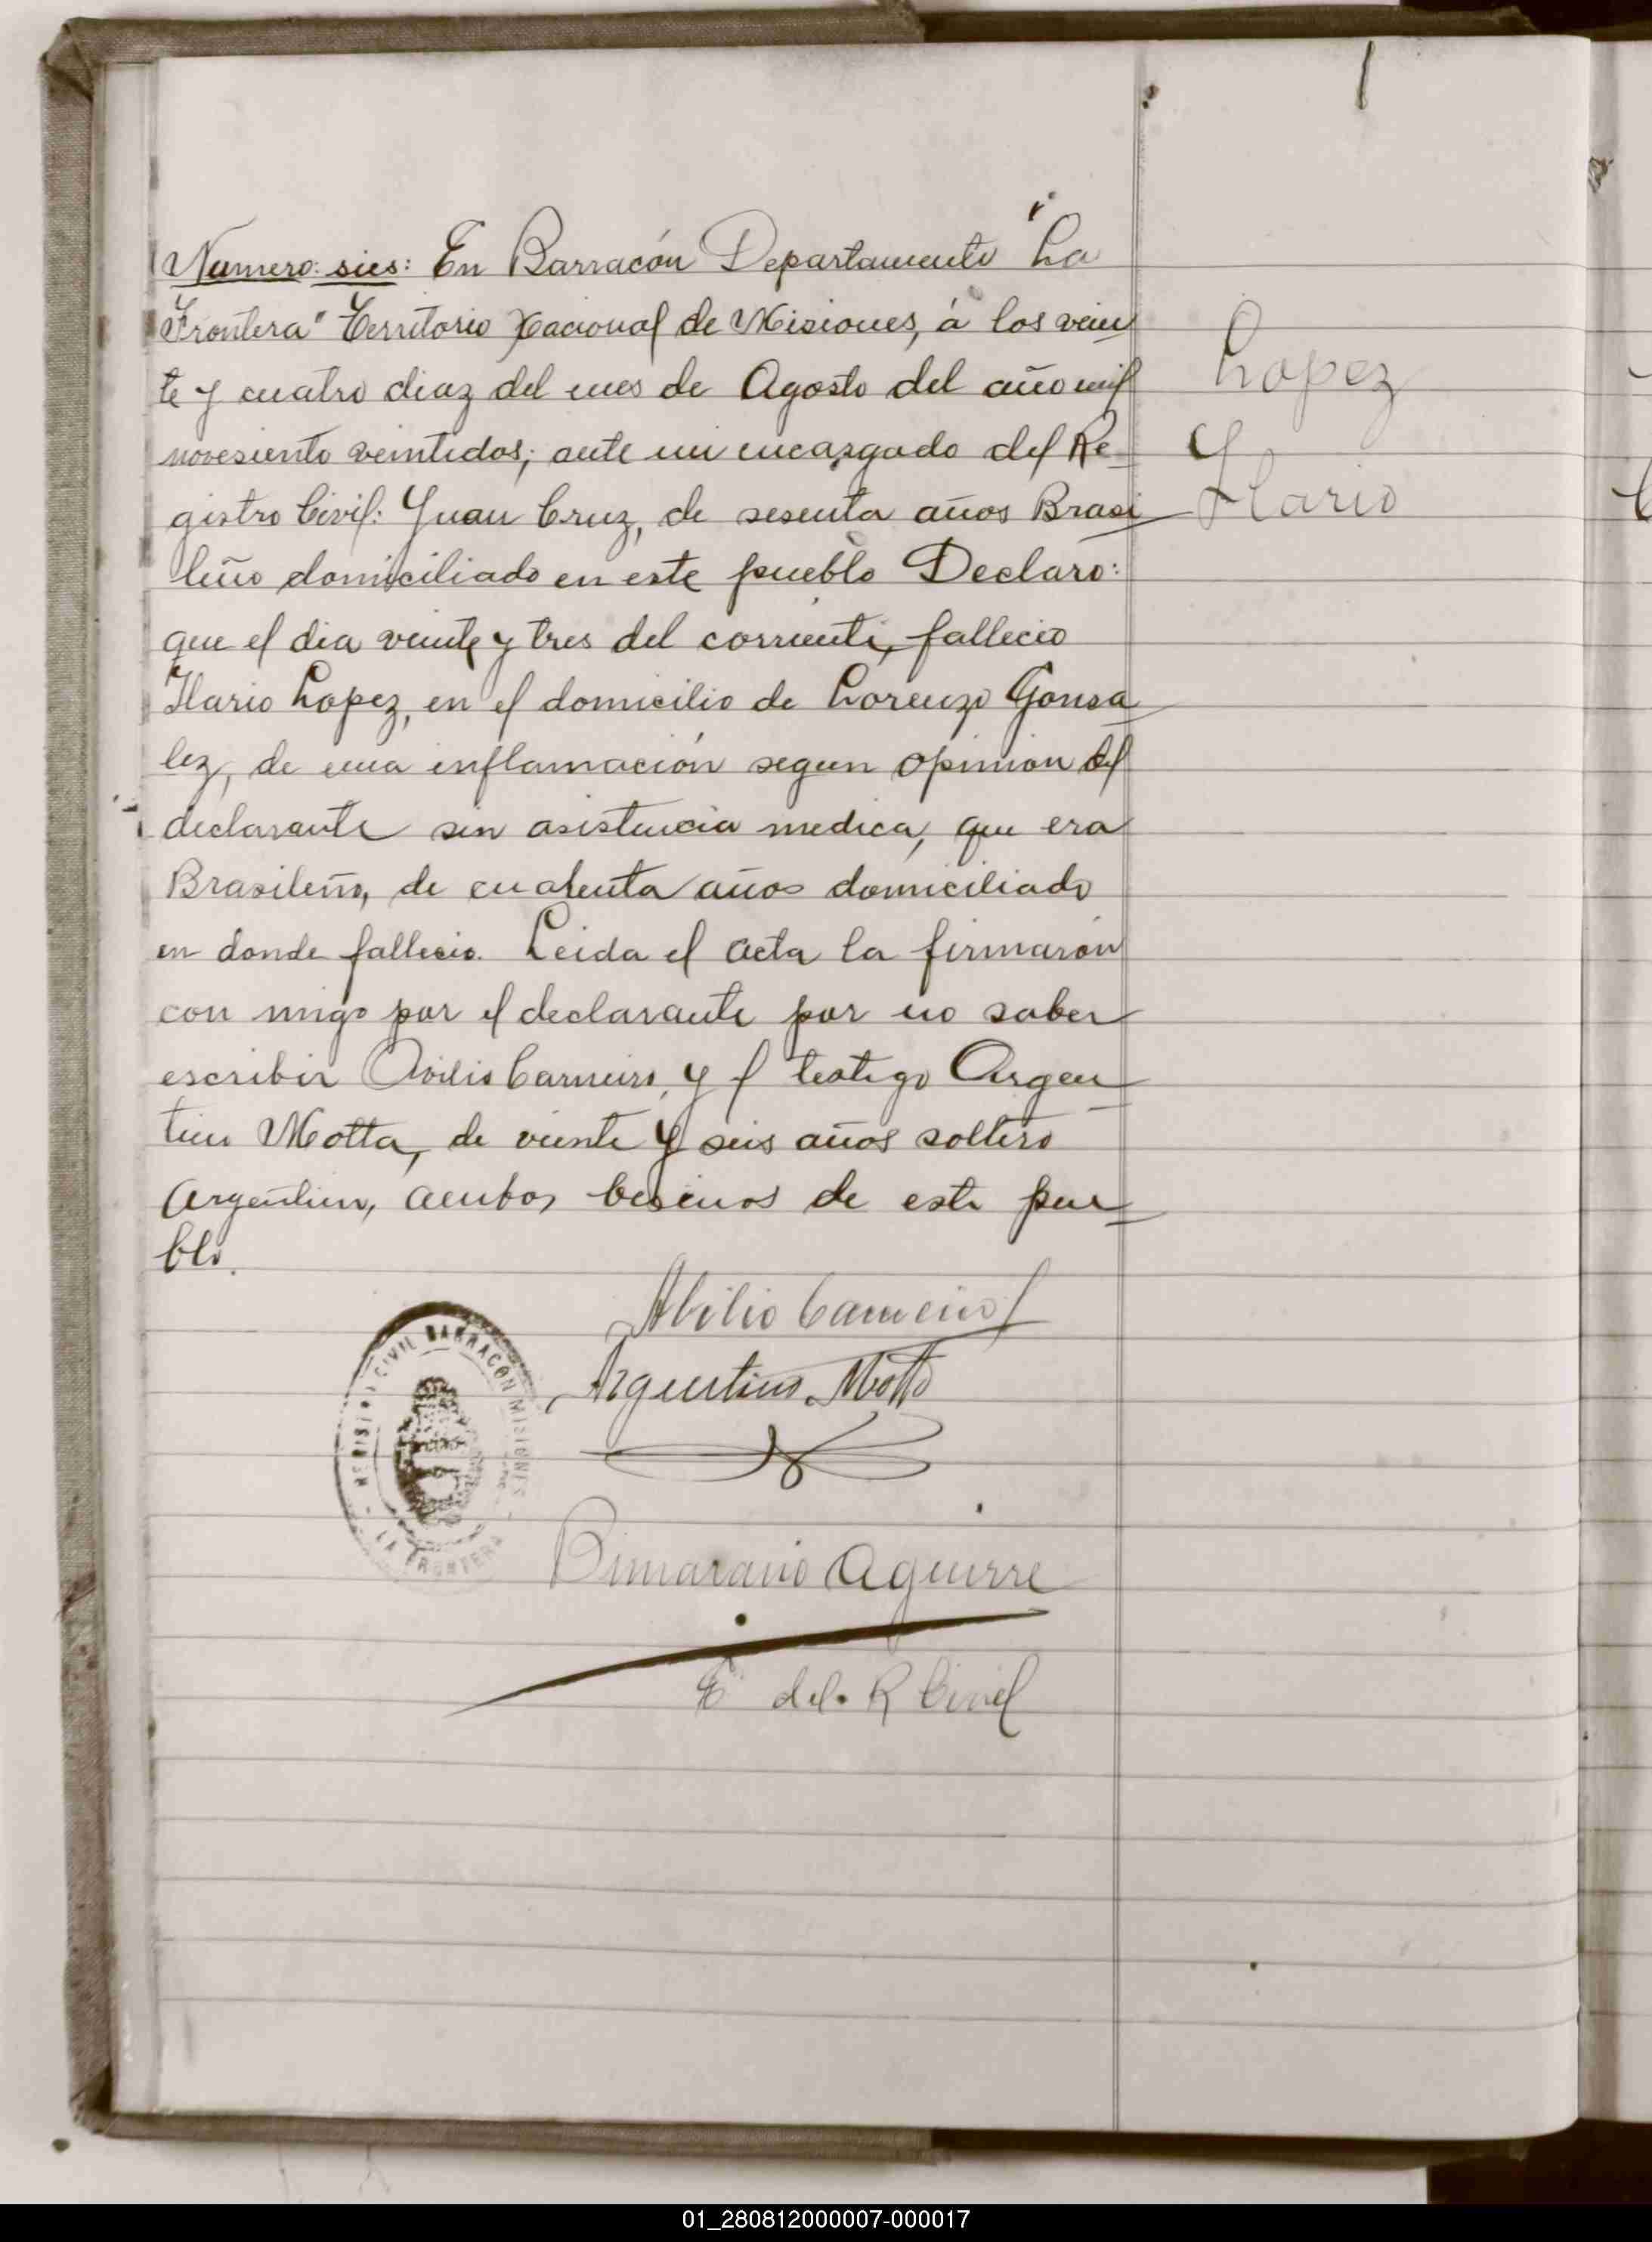 Numero: sies: En Barracón Departamento "La
Frontera" Territorio Nacional de Misiones, á los vein
te y cuatro diaz del mes de Agosto del año mil
novesiento veintidos; ante mi encargado del Re-
gistro Civil: Juan Cruz, de sesenta años Brasi
leño domiciliado en este pueblo Declaro:
que el dia veinte y tres del corriente, fallecio
Ilario Lopez, en el domicilio de Lorenzo Gonsa
lez, de una inflamación segun opinion del
declarante sin asistencia medica, que era
Brasileño, de cuarenta años domiciliado
en donde fallecio. Leida el acta la firmarón
con migo por el declarante por no saber
escribir Avilio Carneiro, y el testigo Argen
tino Motta, de viente y seis años soltero
Argentino, ambos besinos de este pue
blo.
Lopez
Ilario
Abilio Carneiro
Argentino Motta
REGISTRO CIVIL BARRACÓN MISIONES
- LA FRONTERA -
Aguirre
E del. R Civil
01_280812000007-000017